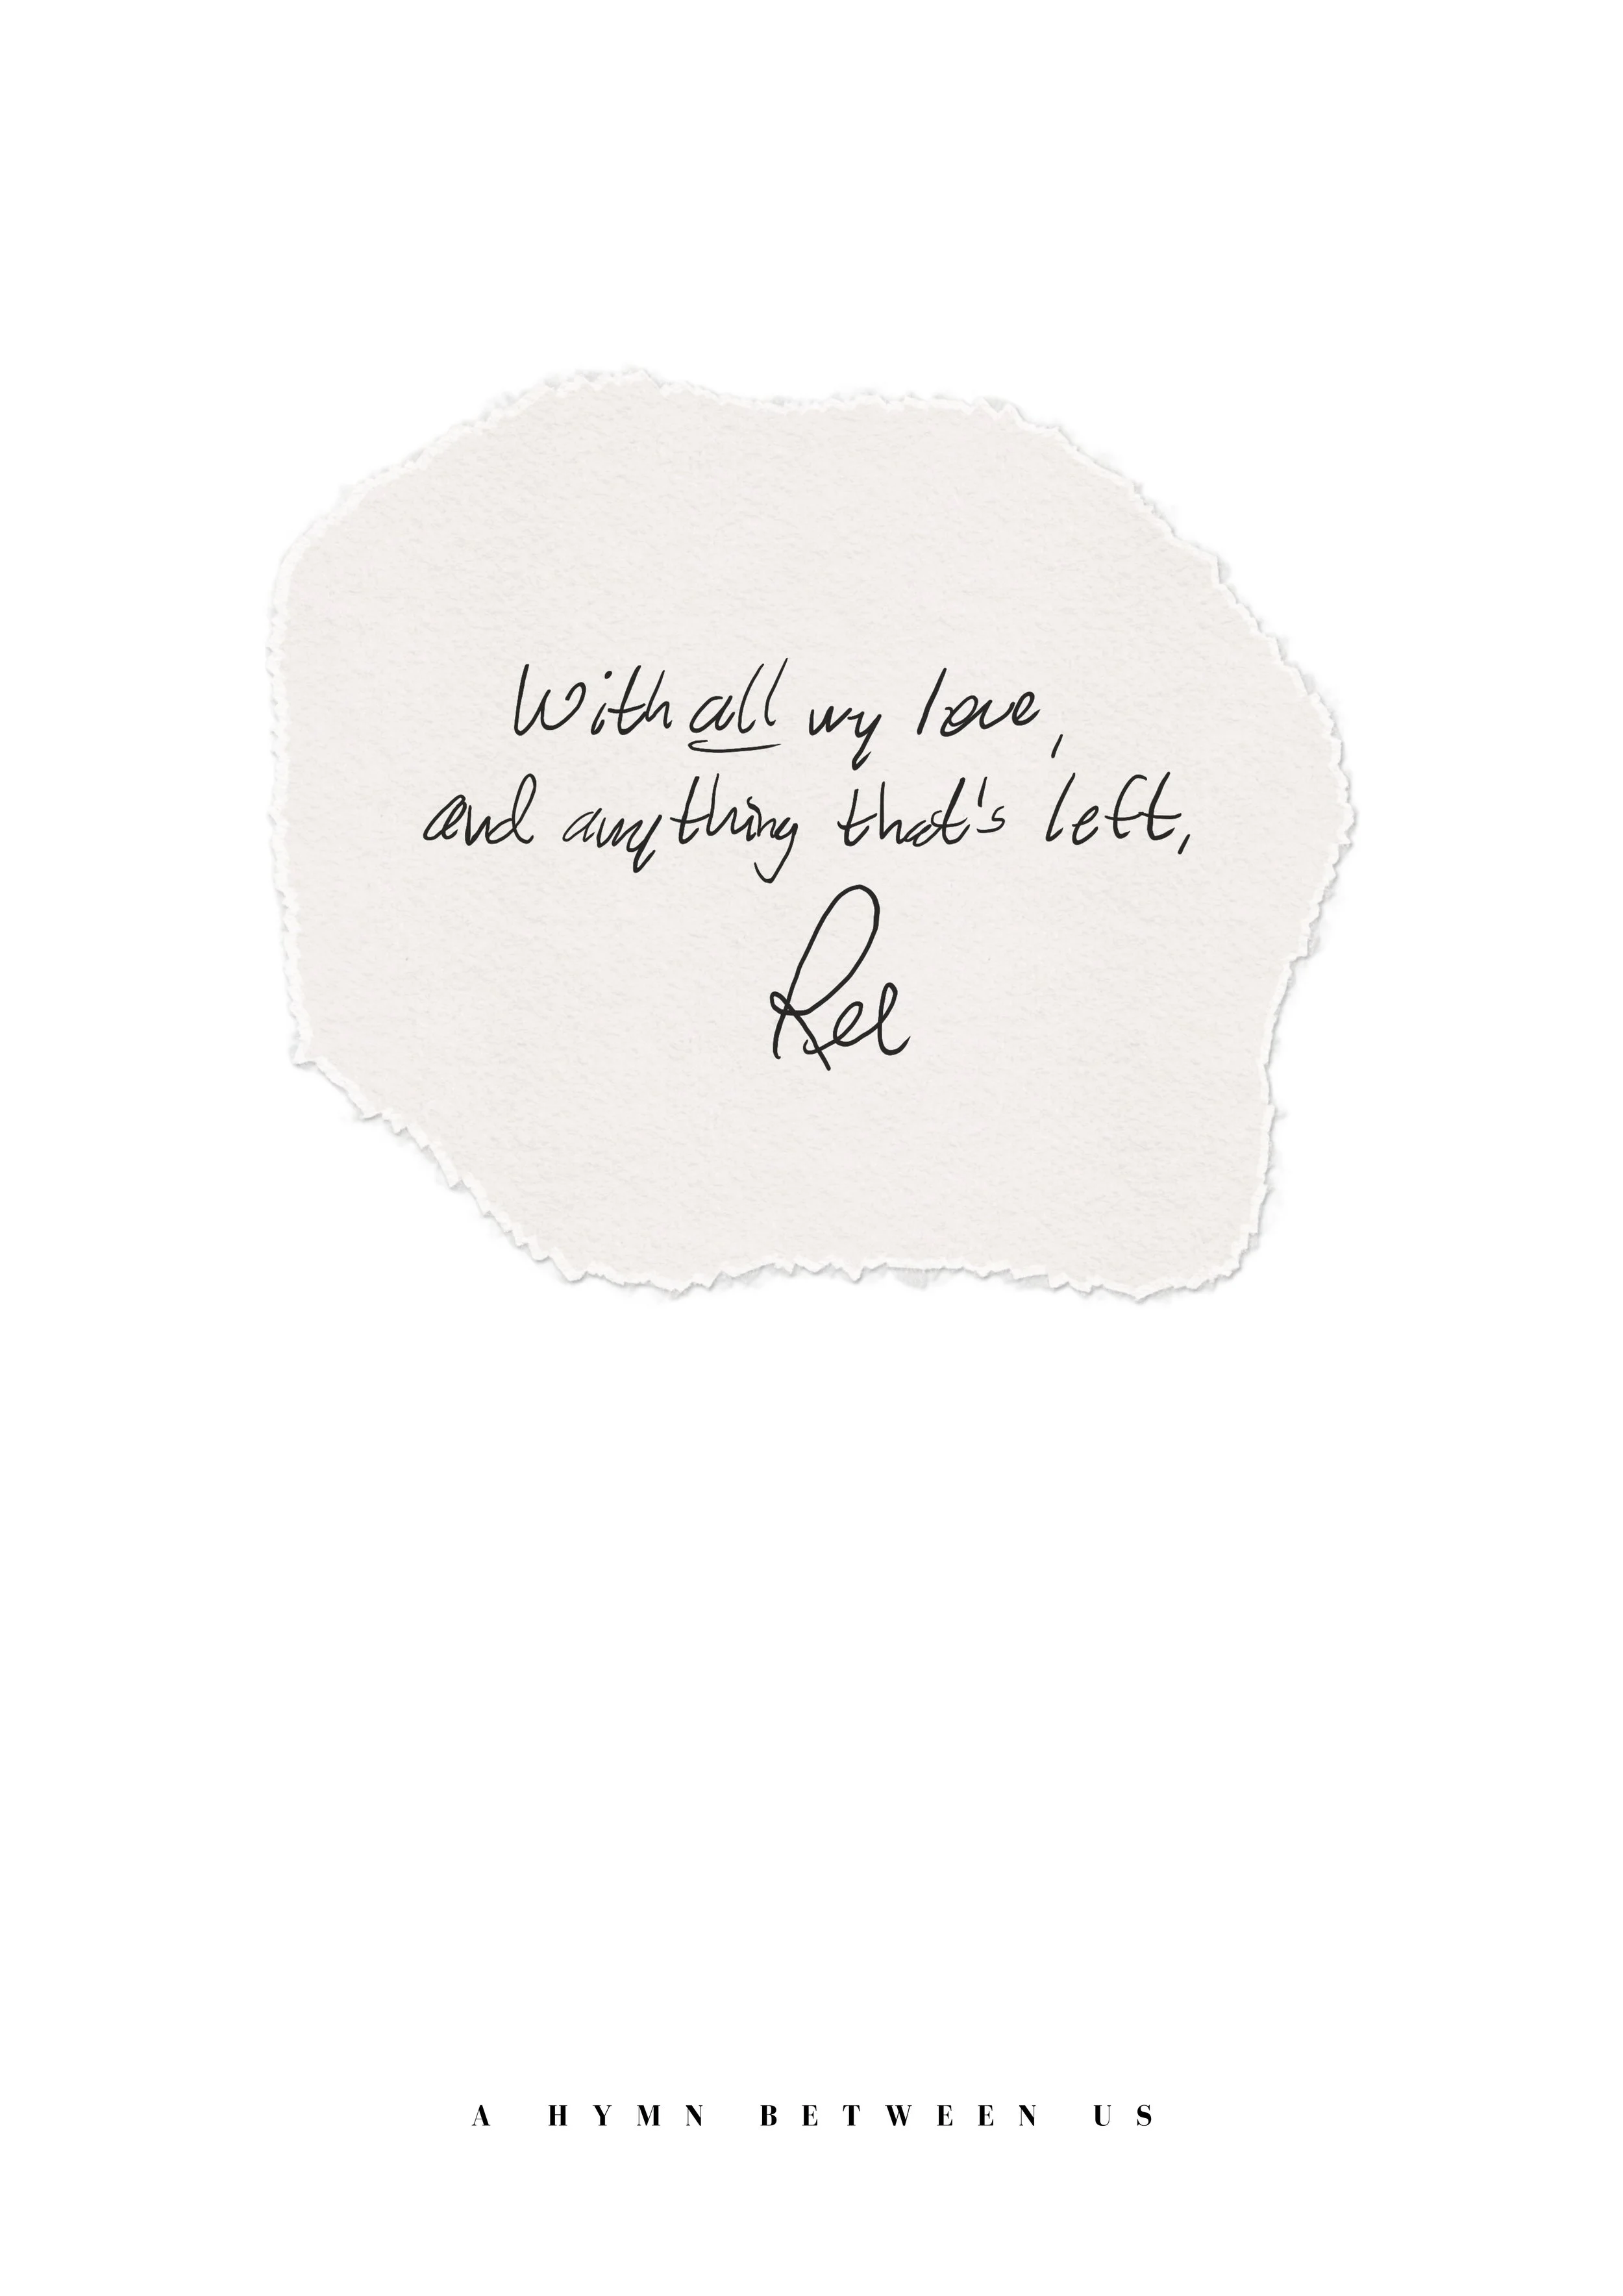 With all my love,
and anything that's left,
Rel
A HYMN BETWEEN US